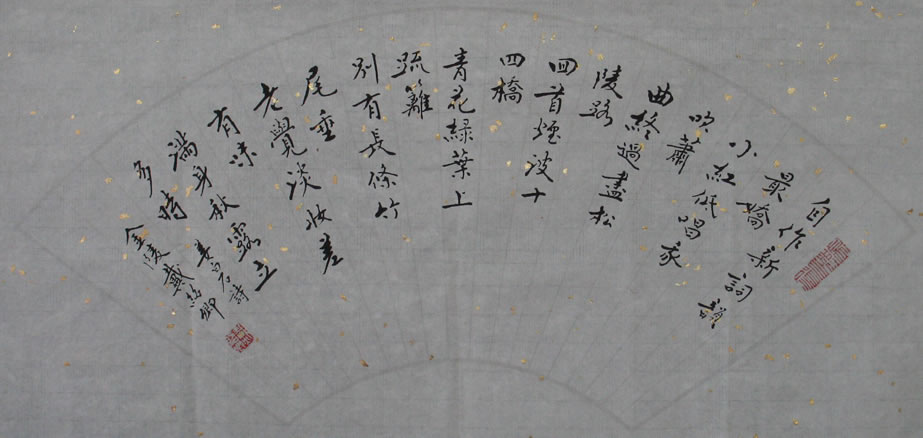 自作新詞韻
最嬌
小紅低唱我
吹簫
曲終過盡松
陵路
回首煙波十
四橋
青花綠葉上
疏籬
別有長條竹
尾垂
老覺淡妝差
有味
滿身秋露立
多時
姜白石詩
金陵戴卿